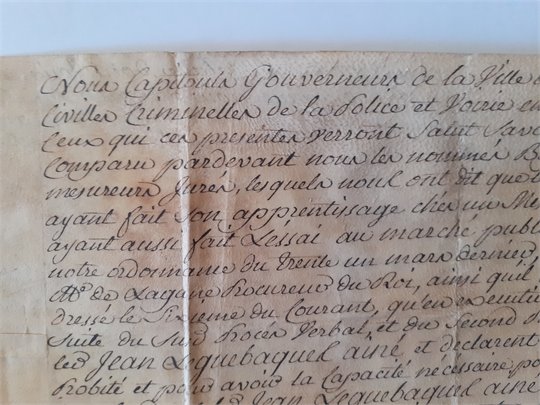 Nous Capitouls Gouverneurs de la Ville d
Civilles Criminelles de la Police et Voirie en
ceux qui ces presentes verront Salut Savo
comparu pardevant nous les nommés B
mesureurs Jurés, lesquels nous ont dit que l
ayant fait son apprentissage chés un Me
ayant aussi fait L'éssai au marché publ
notre ordonnanse du trente un mars dernier,
Me. de Lagane Procureur du Roi, ainsi quil
dressé le Sixieme du Courant, qu'en executi
Suite du Susd. Procés Verbal, et du Second P
led. Jean Lequebaquel ainé, et declarent
Probité et pour avoir la Capacité nécessaire po
Jean Lequebaquel ainé